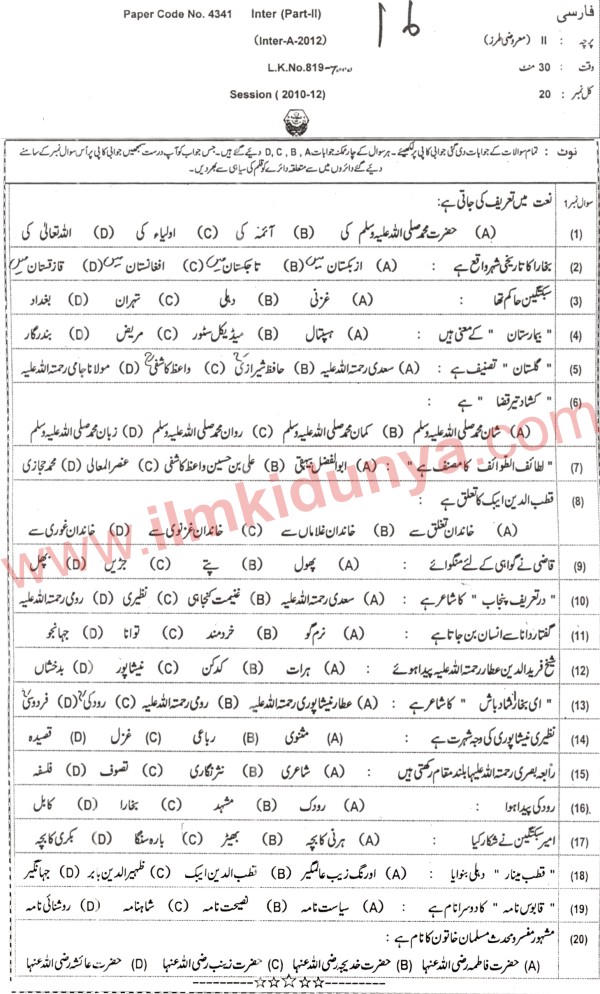 Paper Code No. 4341 Inter (Part-II) فارسی
(Inter-A-2012) پرچہ : II (معروضی طرز)
L.K.No.819- وقت : 30 منٹ
Session ( 2010-12) کل نمبر : 20
16
نوٹ : تمام سوالات کے جوابات دی گئی جوابی کاپی پر لکھیئے۔ ہر سوال کے چار ممکنہ جوابات D, C, B, A دیئے گئے ہیں۔ جس جواب کو آپ درست سمجھیں جوابی کاپی پر اُس سوال نمبر کے سامنے
دیئے گئے دائروں میں سے متعلقہ دائرے کو قلم کی سیاہی سے بھر دیں۔
سوال نمبر 1 نعت میں تعریف کی جاتی ہے :
(1) (A) حضرت محمد صلی اللہ علیہ وسلم کی (B) آئمہ کی (C) اولیاء کی (D) اللہ تعالیٰ کی
(2) بخارا کا تاریخی شہر واقع ہے : (A) ازبکستان میں (B) تاجکستان میں (C) افغانستان میں (D) قازقستان میں
(3) سبکتگین حاکم تھا : (A) غزنی (B) دہلی (C) تہران (D) بغداد
(4) " بیمارستان " کے معنی ہیں : (A) ہسپتال (B) میڈیکل سٹور (C) مریض (D) بندرگار
(5) " گلستان " تصنیف ہے : (A) سعدی رحمتہ اللہ علیہ (B) حافظ شیرازی کی (C) واعظ کاشفی کی (D) مولانا جامی رحمتہ اللہ علیہ
(6) " کشاد تیر قضا " ہے :
(A) شان محمد صلی اللہ علیہ وسلم (B) کمان محمد صلی اللہ علیہ وسلم (C) روان محمد صلی اللہ علیہ وسلم (D) زبان محمد صلی اللہ علیہ وسلم
(7) " لطائف الطوائف کا مصنف ہے " : (A) ابوالفضل بیہقی (B) علی بن حسین واعظ کاشفی (C) عنصر المعالی (D) محمد حجازی
(8) قطب الدین ایبک کا تعلق ہے :
(A) خاندان تغلق سے (B) خاندان غلاماں سے (C) خاندان غزنوی سے (D) خاندان غوری سے
(9) قاضی نے گواہی کے لئے منگوائے : (A) پھول (B) پتے (C) جڑیں (D) پھل
(10) " در تعریف پنجاب " کا شاعر ہے : (A) سعدی رحمتہ اللہ علیہ (B) غنیمت کنجاہی (C) نظیری (D) رومی رحمتہ اللہ علیہ
(11) گفتار دانا سے انسان بن جاتا ہے : (A) نرم گو (B) خردمند (C) توانا (D) جہانجو
(12) شیخ فرید الدین عطار رحمتہ اللہ علیہ پیدا ہوئے : (A) ہرات (B) کدکن (C) نیشاپور (D) بدخشاں
(13) " ای بخارا شاد باش " کا شاعر ہے : (A) عطار نیشاپوری رحمتہ اللہ علیہ (B) رومی رحمتہ اللہ علیہ (C) رودکی (D) فردوسی
(14) نظیری نیشاپوری کی وجہ شہرت ہے : (A) مثنوی (B) رباعی (C) غزل (D) قصیدہ
(15) رابعہ بصری رحمتہ اللہ علیہا بلند مقام رکھتی ہیں : (A) شاعری (B) نثر نگاری (C) تصوف (D) فلسفہ
(16) رودکی پیدا ہوا : (A) رودک (B) مشہد (C) بخارا (D) کابل
(17) امیر سبکتگین نے شکار کیا : (A) ہرنی کا بچہ (B) بھیڑ (C) بارہ سنگا (D) بکری کا بچہ
(18) " قطب مینار " دہلی بنوایا : (A) اورنگ زیب عالمگیر (B) قطب الدین ایبک (C) ظہیر الدین بابر (D) جہانگیر
(19) " قابوس نامہ " کا دوسرا نام ہے : (A) سیاست نامہ (B) نصیحت نامہ (C) شاہنامہ (D) روشنائی نامہ
(20) مشہور مفسر و محدث مسلمان خاتون کا نام ہے :
(A) حضرت فاطمہ رضی اللہ عنہا (B) حضرت خدیجہ رضی اللہ عنہا (C) حضرت زینب رضی اللہ عنہا (D) حضرت عائشہ رضی اللہ عنہا
www.ilmkidunya.com